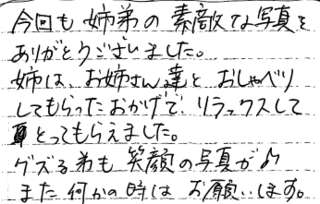 今回も姉弟の素敵な写真を
ありがとうございました。
姉は、お姉さん達とおしゃべり
してもらったおかげで、リラックスして
とってもらえました。
グズる弟も笑顔の写真が♪
また何かの時はお願いします。